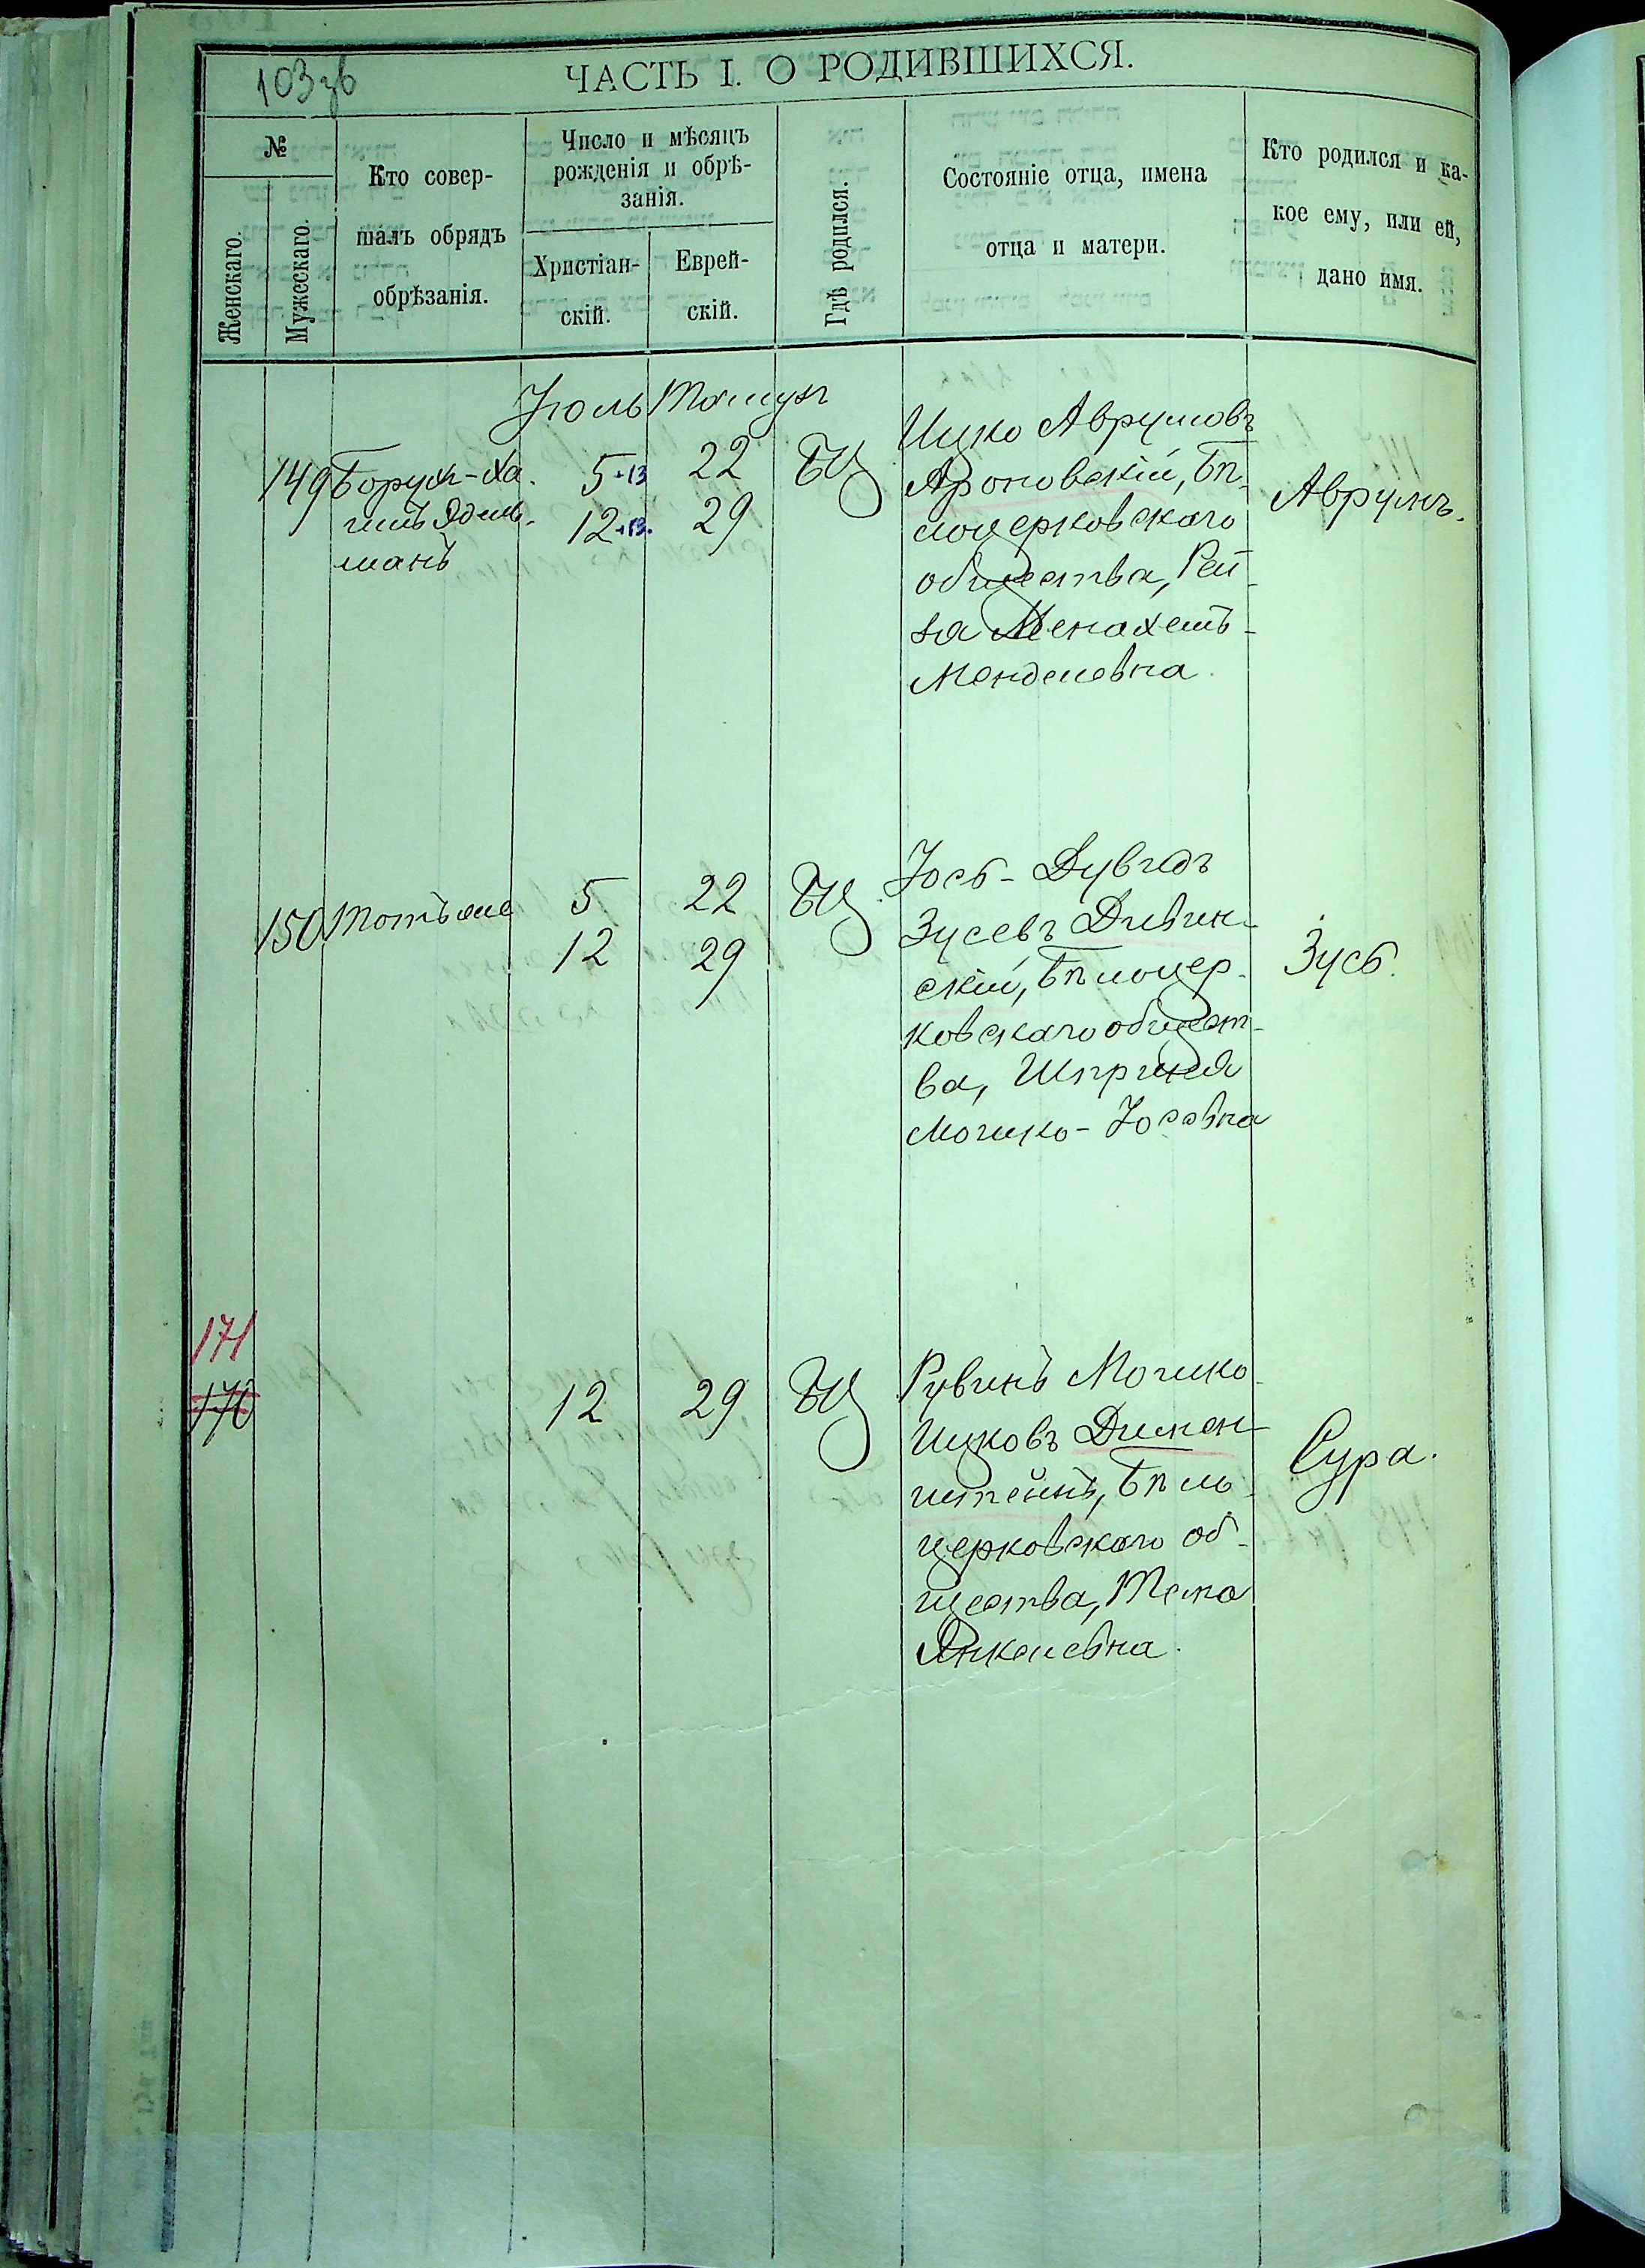 103 зв
ЧАСТЬ I. О РОДИВШИХСЯ.
№
Женскаго.
Мужескаго.
Кто совер-
шалъ обрядъ
обрѣзанія.
Число и мѣсяцъ
рожденія и обрѣ-
занія.
Христіан-
скій.
Еврей-
скій.
Гдѣ родился.
Состояніе отца, имена
отца и матери.
Кто родился и ка-
кое ему, или ей,
дано имя.
Іюль Тамузъ
149 Борух-Ха-
имъ Эдель-
манъ
5 +13 22
12 +13. 29
БЦ
Ицко Аврумовъ
Ароновскій, Бѣ-
лоцерковскаго
общества, Рей-
за Менахемъ-
Менделевна.
Аврумъ.
150 Тотъ же
5 22
12 29
БЦ
Іось-Дувидъ
Зусевъ Дивин-
скій, Бѣлоцер-
ковскаго общест-
ва, Шпринця
Мошко-Іосевна
Зусь.
171
170
12 29
БЦ
Рувинъ Мошко-
Ицковъ Димен-
штейнъ, Бѣло-
церковскаго об-
щества,
Янкелевна.
Сура.